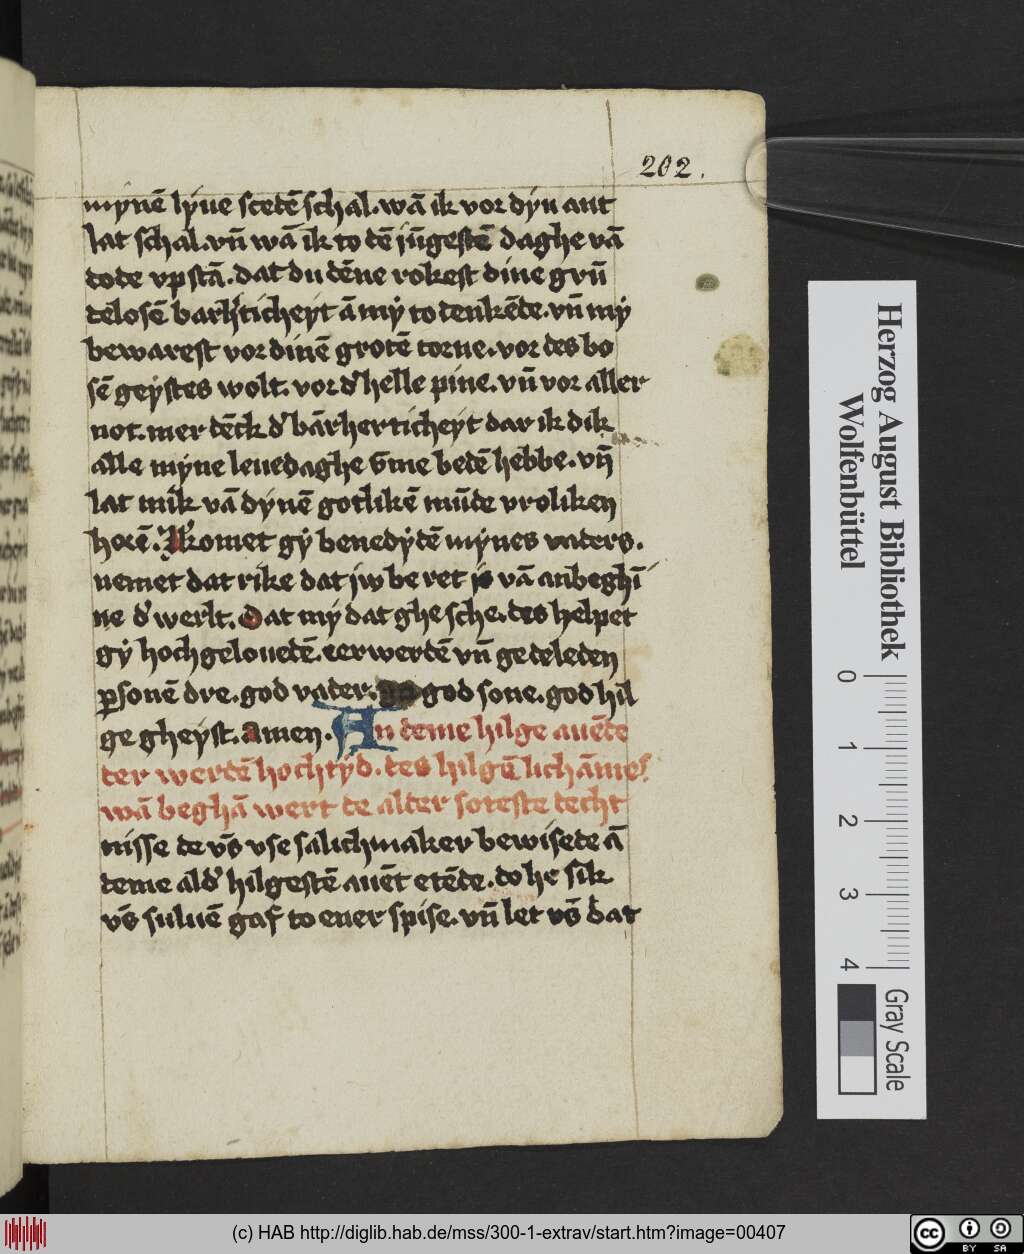 202.
mynē lyue scetē schal. wā ik vor dyn ant
lat schal. vn̄ wā ik to dē jūgestē daghe vā
dode vp stā. dat du dēne rokest dine grū
delosē barhticheyt ā my to denkēde. vn̄ my
bewarest vor dinē grotē torne. vor des bo
sē geystes wolt. vor d' helle pine. vn̄ vor aller
not. mer dēck d' bārherticheyt dar ik dik
alle myne leuedaghe vme bedē hebbe. vn̄
lat mik vā dynē gotlikē mūde vroliken
horē. Komet gy benedydē mynes vaders.
nemet dat rike dat jw be ret is vā anbeghī
ne d' werlt. Dat my dat ghe sche. des helpet
gy hochgelouedē. eerwerdē vn̄ gedeleden
ꝑsonē dre. god vader. god sone. god hil
ge gheyst. amen. An deme hilge auēde
der werdē hochtyd. des hilgē lichāmes
wā beghā wert de alder soteste decht
nisse de vs̄ vse salichmaker bewisede ā
deme ald' hilgestē auēt etēde. do he sik
vs̄ suluē gaf to ener spise. vn̄ let vs̄ dat
Herzog August Bibliothek
Wolfenbüttel
0 1 2 3 4
Gray Scale
(c) HAB http://diglib.hab.de/mss/300-1-extrav/start.htm?image=00407
cc BY SA